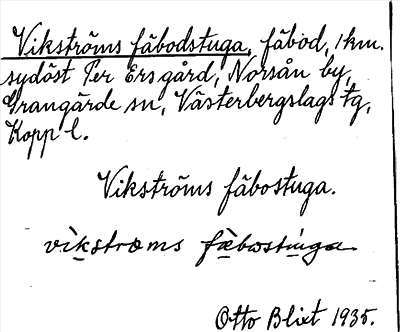 Vikströms fäbodstuga, fäbod, 1 km.
sydöst Per Ersgård, Norsån by,
Grangärde sn, Västerbergslags tg,
Kopp l.
Vikströms fäbostuga.
vìkstrœms fæ̀bostuga.
Otto Blixt 1935.